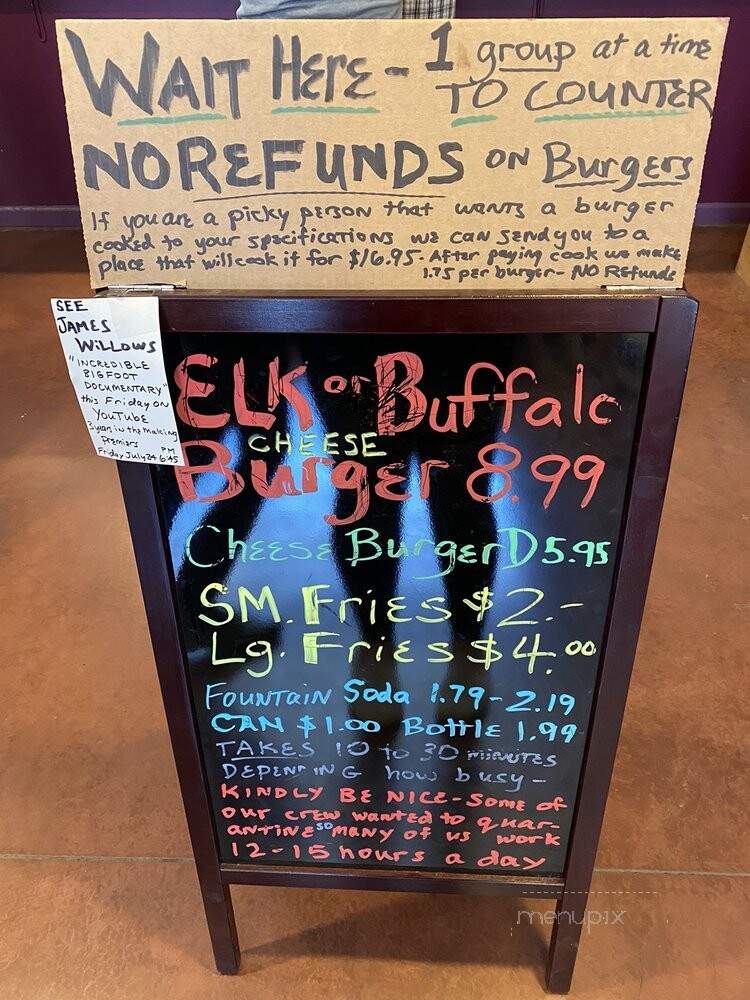 WAIT HERE - 1 group at a time
TO COUNTER
NO REFUNDS ON Burgers
If you are a picky person that wants a burger
cooked to your specifications we can send you to a
place that will cook it for $16.95. After paying cook we make
1.75 per burger - NO Refunds
SEE
JAMES
WILLOWS
"INCREDIBLE
BIGFOOT
DOCUMENTARY"
this Friday on
YouTube
3 years in the making
Premiers
Friday July 24 6:45 PM
ELK or Buffalo
CHEESE
Burger 8.99
Cheese Burger D 5.95
SM. Fries $2.-
Lg. Fries $4.00
FOUNTAIN Soda 1.79-2.19
CAN $1.00 Bottle 1.99
TAKES 10 to 30 minutes
DEPENDING how busy-
KINDLY BE NICE-Some of
our crew wanted to quar-
antine so many of us work
12-15 hours a day
menupix